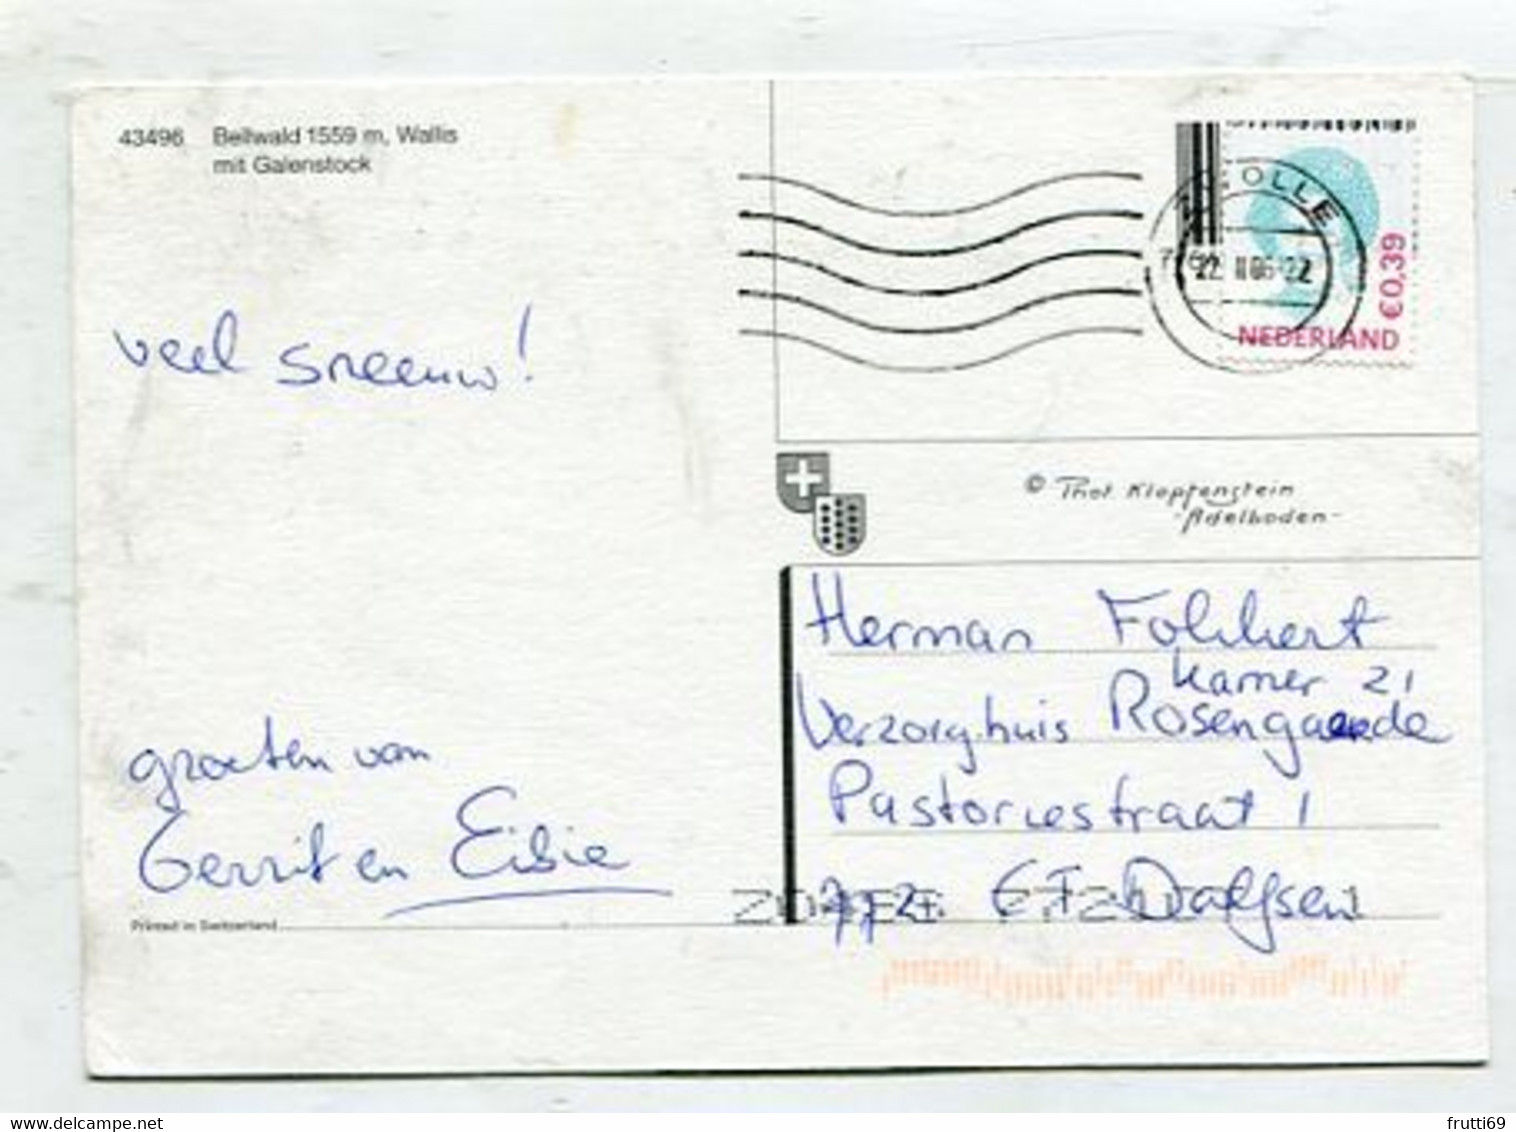 43496 Bellwald 1559 m, Wallis
mit Galenstock
veel sneeuw!
groeten van
Gerrit en Eibie
Printed in Switzerland
OLLE
22 II 06-22
€0,39
NEDERLAND
© Phot. Klopfenstein
-Adelboden-
Herman Fokkert
kamer 21
Verzorg.huis Rosengaerde
Pastoriestraat 1
7721 CT Dalfsen
www.delcampe.net
frutti69